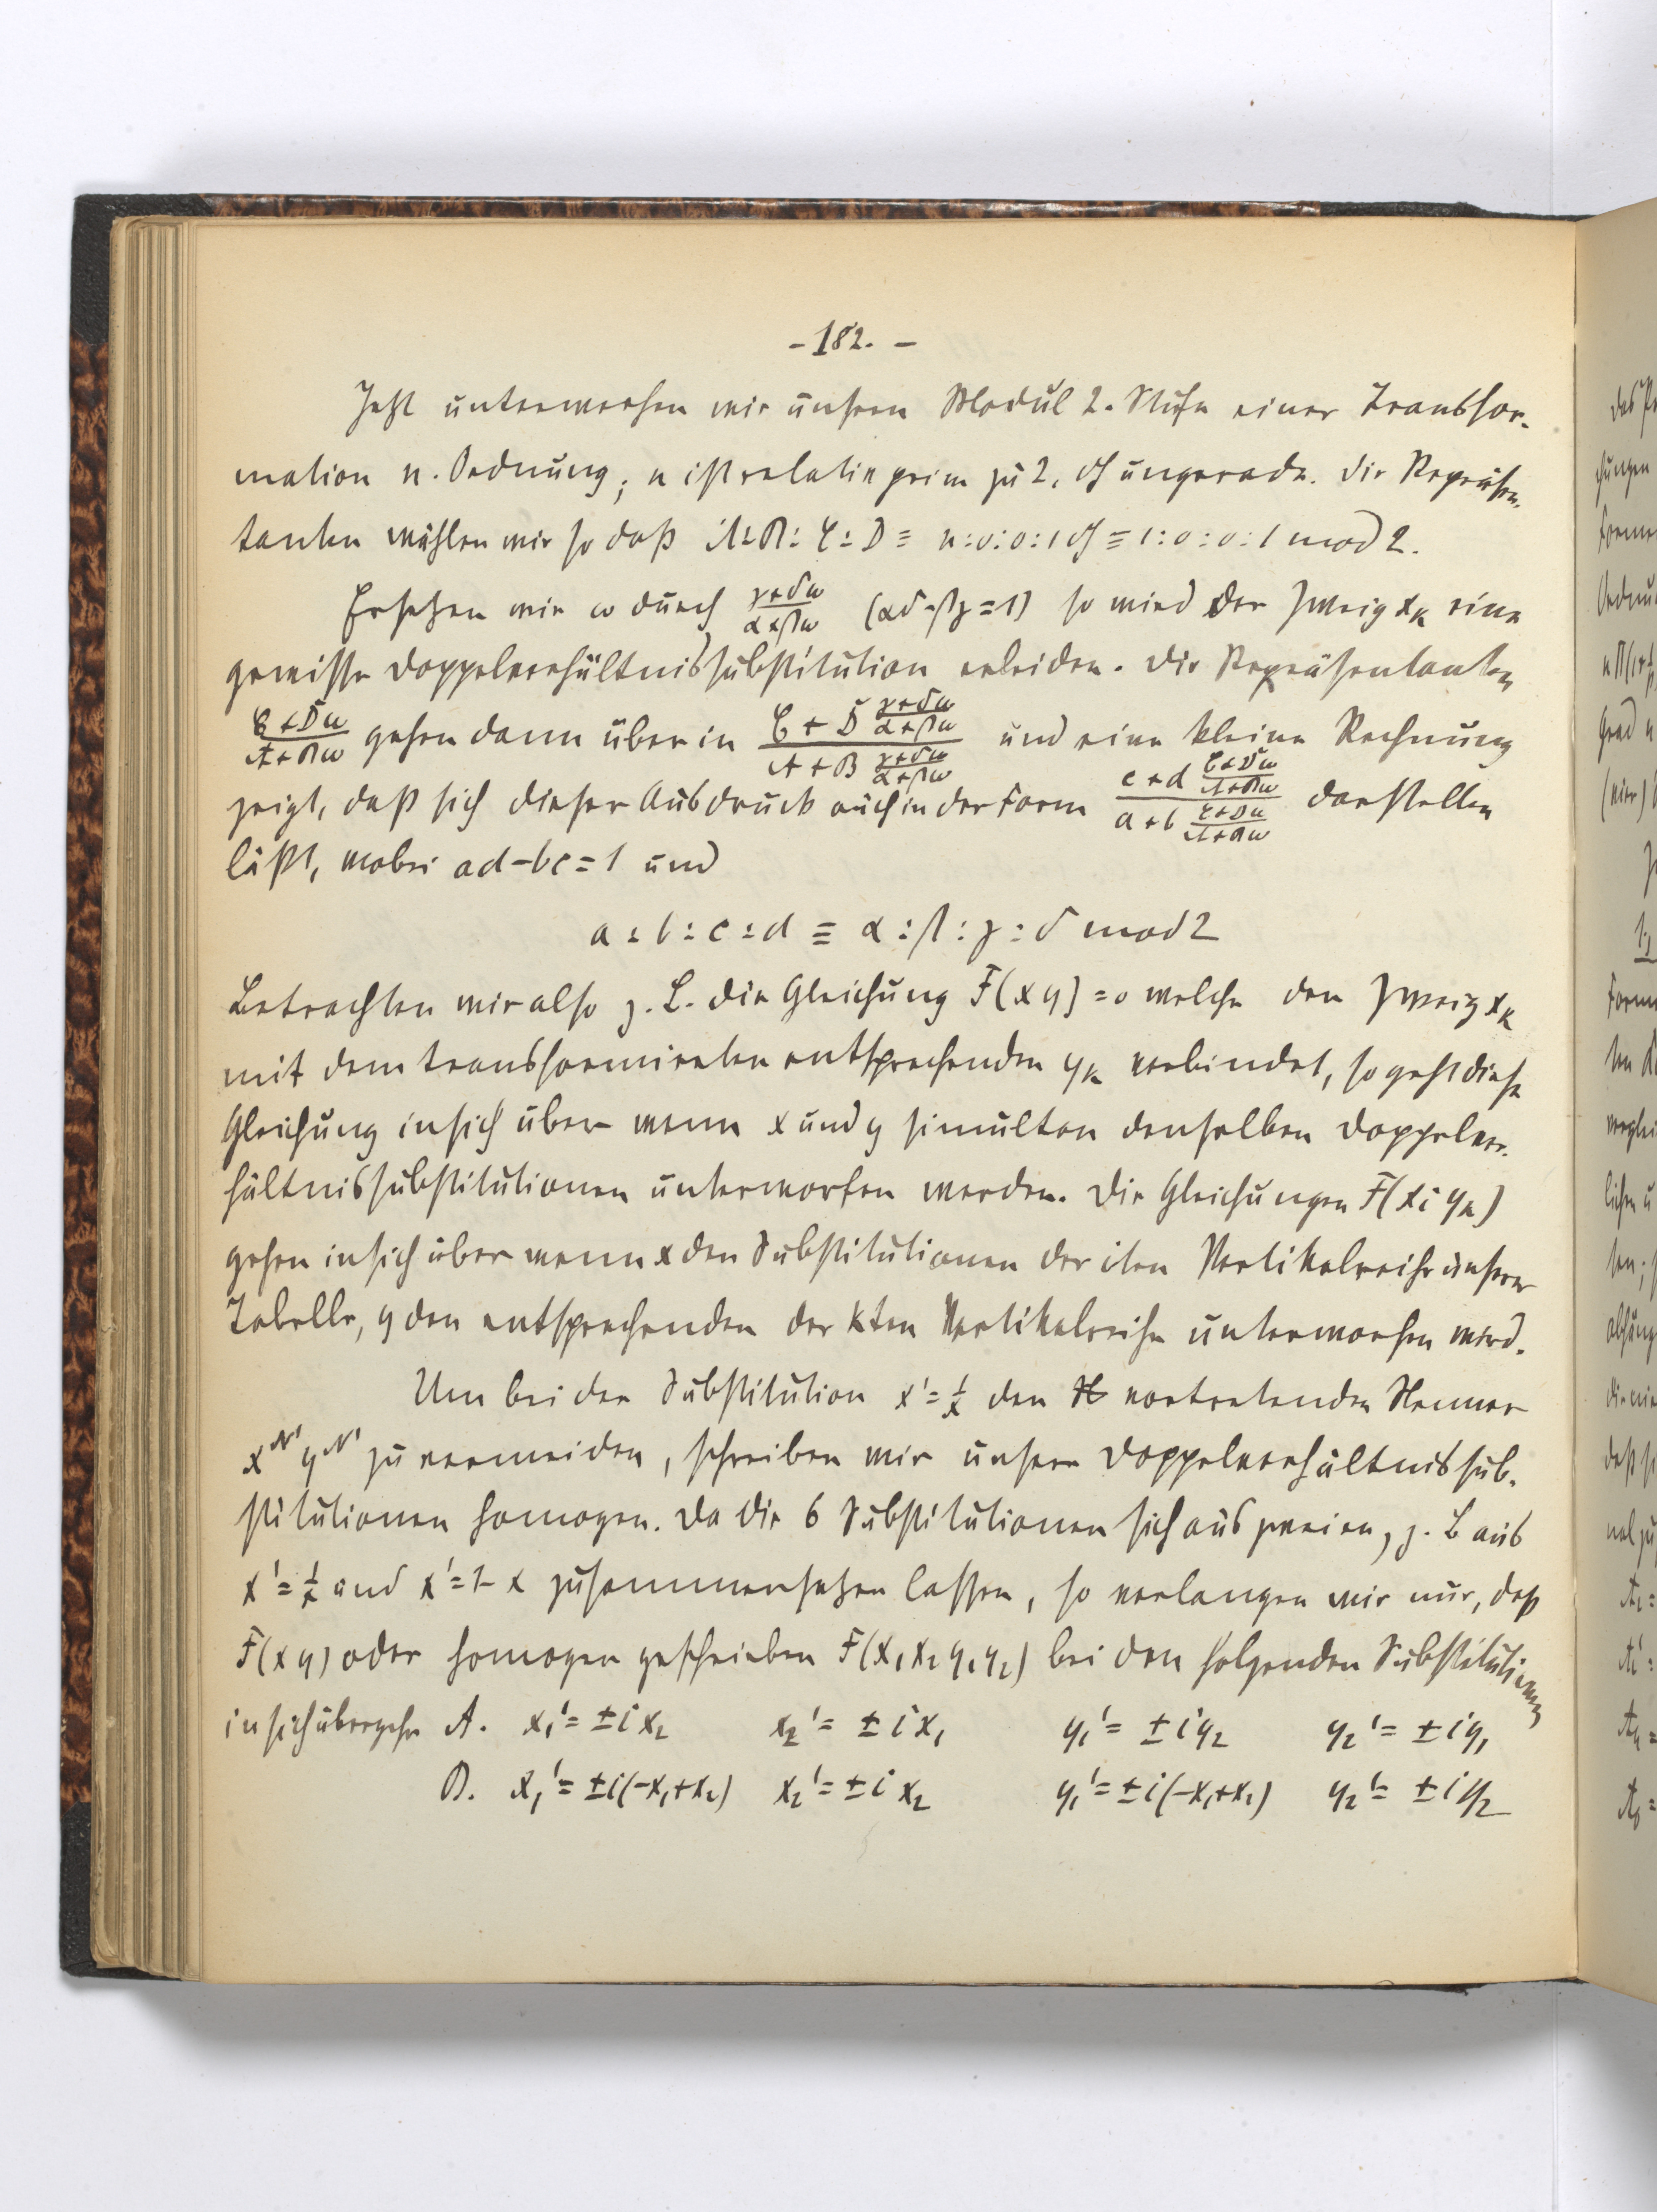 - 182. -
Jetzt unterwerfen wir unsern Modul 2. Stufe einer Transfor-
mation n. Ordnung; n ist relativ prim zu 2, d.h. ungerade. Die Repräsen-
tanten wählen wir so daß A:B:C:D ≡ n:0:0:1 d.h. ≡ 1:0:0:1 mod 2.
Ersetzen wir ω durch (γ+δω)/(α+βω) (αδ-βγ=1) so wird der Zweig x_k eine
gewisse Doppelverhältnissubstitution erleiden. Die Repräsentanten
(C+Dω)/(A+Bω) gehen dann über in (C+D (γ+δω)/(α+βω))/(A+B (γ+δω)/(α+βω)) und eine kleine Rechnung
zeigt, daß sich dieser Ausdruck auch in der Form (c+d (C+Dω)/(A+Bω))/(a+b (C+Dω)/(A+Bω)) darstellen
läßt, wobei ad-bc=1 und
a:b:c:d ≡ α:β:γ:δ mod 2
Betrachten wir also z. B. die Gleichung F(xy)=0 welche den Zweig x_k
mit dem transformirten entsprechenden y_k verbindet, so geht diese
Gleichung in sich über wenn x und y simultan denselben Doppelver-
hältnissubstitutionen unterworfen werden. Die Gleichungen F(x_i y_k)
gehen in sich über wenn x den Substitutionen der iten Vertikalreihe unserer
Tabelle, y den entsprechenden der kten Vertikalreihe unterworfen wird.
Um bei der Substitution x'=1/x den vortretenden Nenner
x^N' y^N' zu vermeiden, schreiben wir unsere Doppelverhältnissub-
stitutionen homogen. Da die 6 Substitutionen sich aus zweien, z. B aus
x'=1/x und x'=1-x zusammensetzen lassen, so verlangen wir nur, daß
F(xy) oder homogen geschrieben F(x₁x₂y₁y₂) bei den folgenden Substitutionen
in sich übergehe A. x₁'=±ix₂ x₂'=±ix₁ y₁'=±iy₂ y₂'=±iy₁
B. x₁'=±i(-x₁+x₂) x₂'=±ix₂ y₁'=±i(-x₁+x₂) y₂'=±iy₂